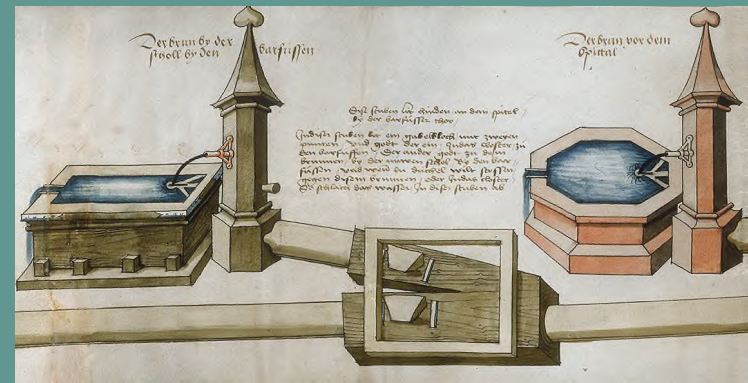 Der brun by der
scholl by den barfussen
Der brun vor dem
spittal
Dise stuben ist hinden an dem spital
by der barfusser thor
In diser stuben lit ein gabelkloch mit zweyen
und godt der ein in das closter zu
den barfussen Der ander godt zu dem
brunnen by der nuwen schol by den bar
fussen und wenn du
gegen disem brunnen oder in das closter
So schlach das wasser in diser stuben ab